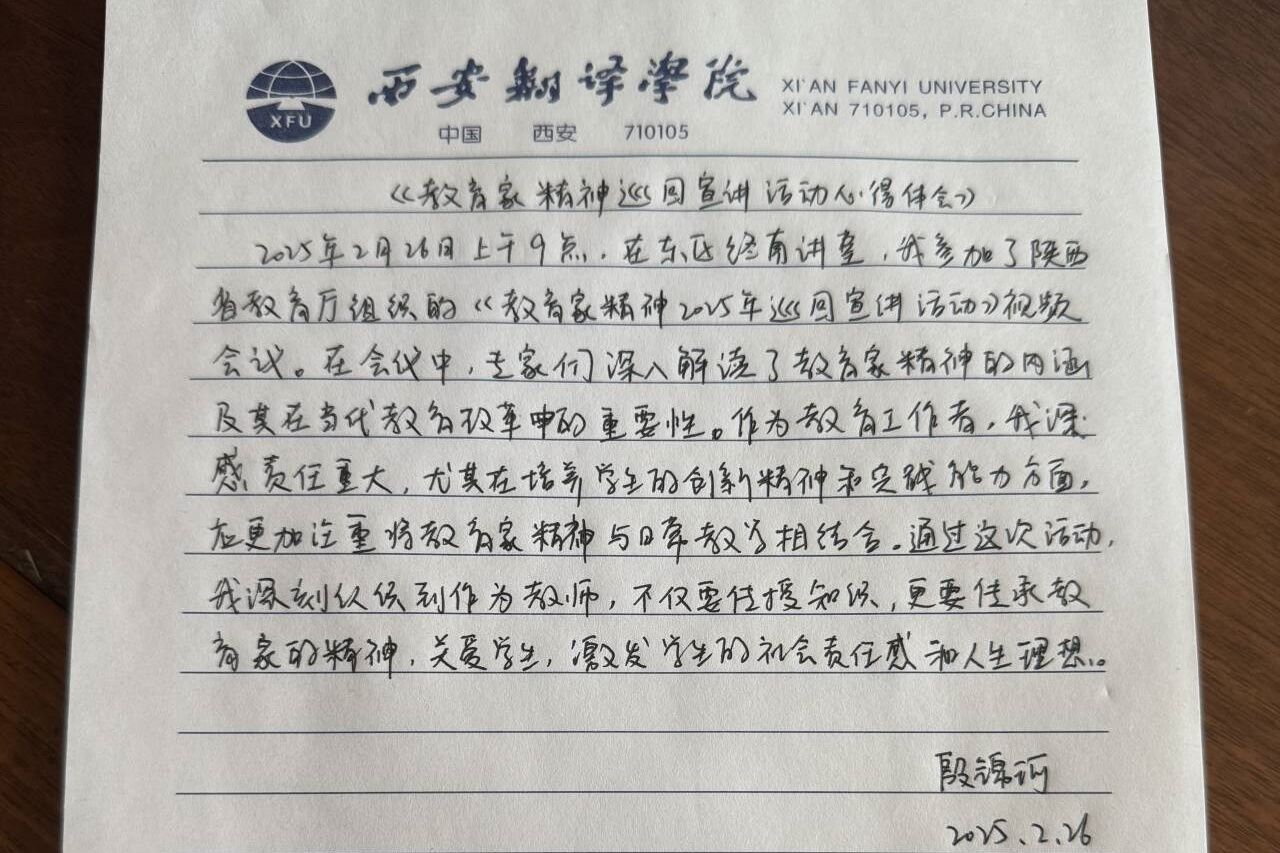 XFU
西安翻译学院
XI'AN FANYI UNIVERSITY
中国 西安 710105
XI'AN 710105, P.R.CHINA
《教育家精神巡回宣讲活动心得体会》
2025年2月26日上午9点,在东区终南讲堂,我参加了陕西
省教育厅组织的《教育家精神2025年巡回宣讲活动》视频
会议。在会议中,专家们深入解读了教育家精神的内涵
及其在当代教育改革中的重要性。作为教育工作者,我深
感责任重大,尤其在培养学生的创新精神和实践能力方面,
应更加注重将教育家精神与日常教学相结合。通过这次活动,
我深刻认识到作为教师,不仅要传授知识,更要传承教
育家的精神,关爱学生,激发学生的社会责任感和人生理想。
殷锦珂
2025.2.26